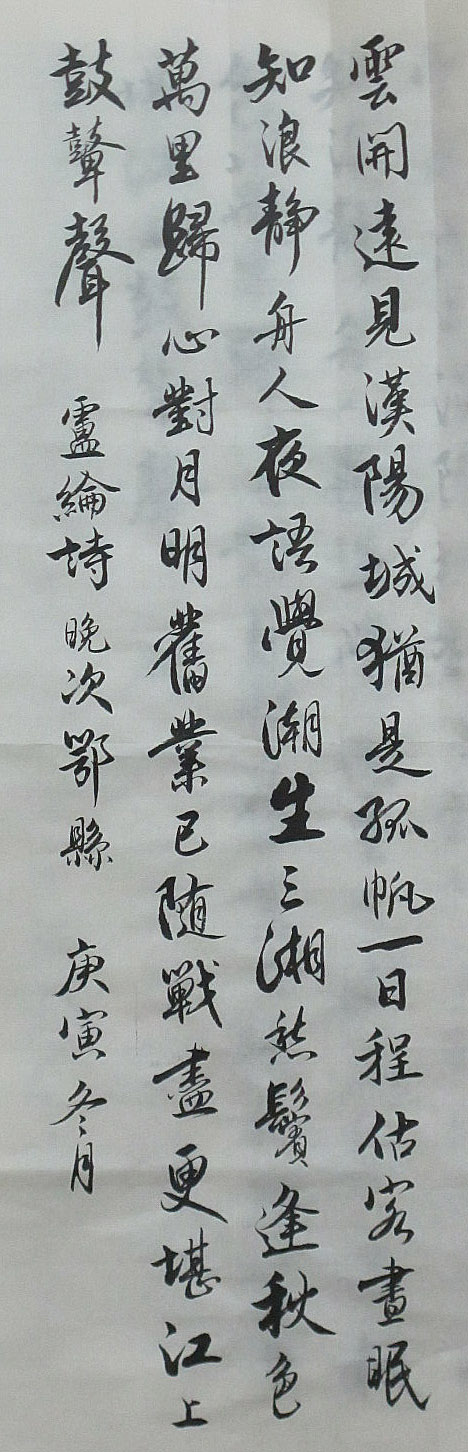 雲開遠見漢陽城猶是孤帆一日程估客晝眠
知浪静舟人夜語覺潮生三湘愁鬢逢秋色
萬里歸心對月明舊業已随戰盡更堪江上
鼓鼙聲 盧綸詩晚次鄂縣 庚寅冬月